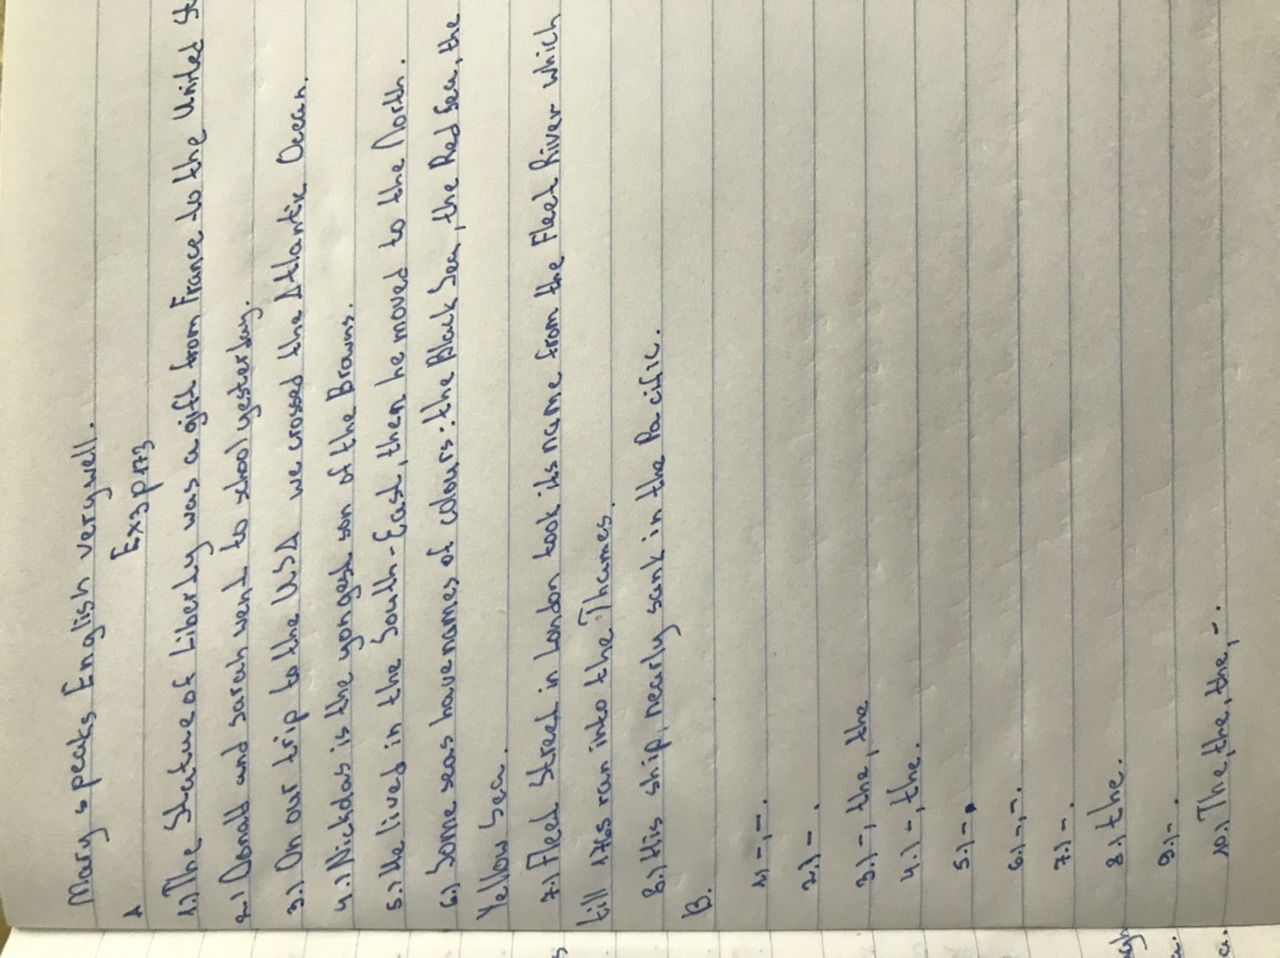 Mary speaks English very well.
Ex3 p173
A
1.) The Statue of Liberty was a gift from France to the United St
2.) Donald and Sarah went to school yesterday.
3.) On our trip to the USA we crossed the Atlantic Ocean.
4.) Nickolas is the yongest son of the Browns.
5.) He lived in the South-East, then he moved to the North.
6.) Some seas have names of colours: the Black Sea, the Red Sea, the
Yellow Sea.
7.) Fleet Street in London took its name from the Fleet River which
till 1765 ran into the Thames.
8.) His ship, nearly sank in the Pacific.
B.
1) -, -.
2.) -.
3.) -, the, the
4.) -, the.
5.) -.
6.) -, -.
7.) -.
8.) the.
9.) -.
10.) The, the, the, -.